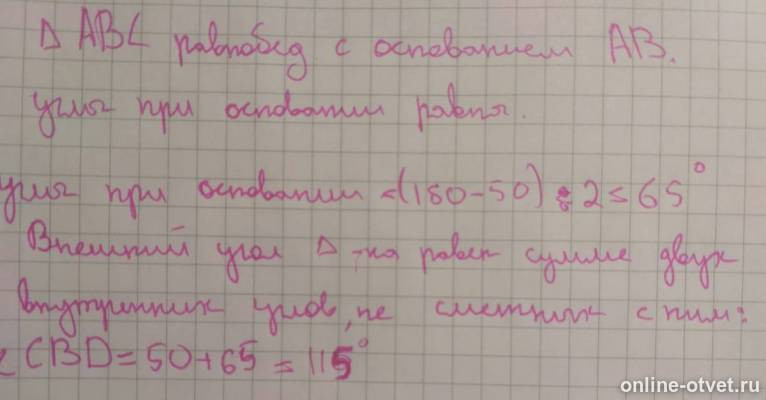 Δ ABC равнобед с основанием AB.
углы при основании равны.
углы при основании =(180-50):2=65°
Внешний угол Δ-ка равен сумме двух
внутренних углов, не смежных с ним:
∠CBD=50+65=115°
online-otvet.ru